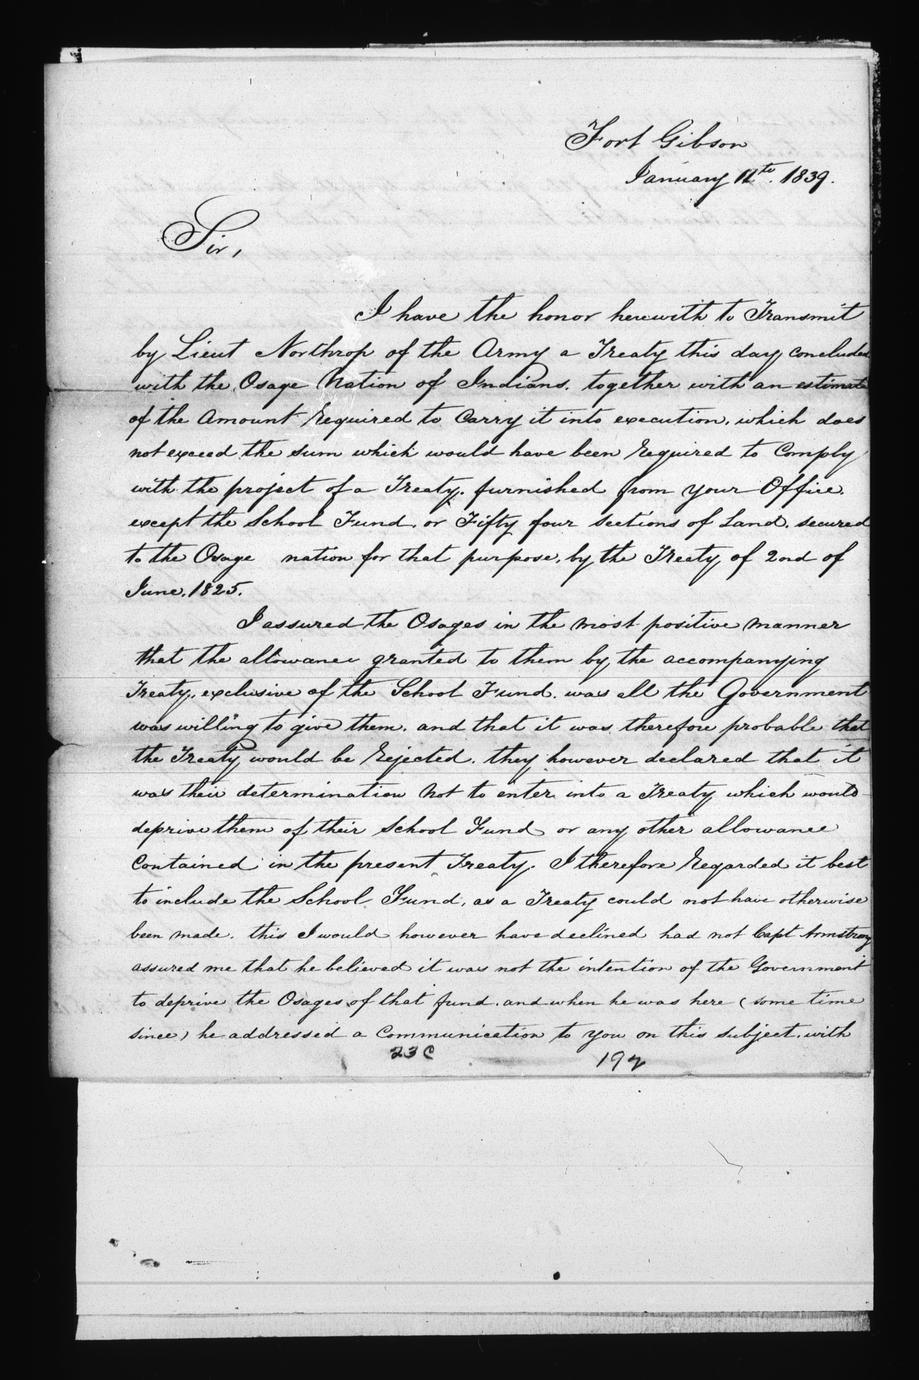 Fort Gibson
January 11th. 1839.
Sir,
I have the honor herewith to Transmit
by Lieut Northrop of the Army a Treaty this day concluded
with the Osage Nation of Indians, together with an estimate
of the Amount Required to Carry it into execution, which does
not exceed the sum which would have been Required to Comply
with the project of a Treaty, furnished from your Office,
except the School Fund, or Fifty four sections of Land, secured
to the Osage nation for that purpose, by the Treaty of 2nd of
June, 1825.
I assured the Osages in the most positive manner
that the allowance granted to them by the accompanying
Treaty, exclusive of the School Fund, was all the Government
was willing to give them, and that it was therefore probable that
the Treaty would be Rejected, they however declared that it
was their determination Not to enter into a Treaty which would
deprive them of their School Fund or any other allowance
Contained in the present Treaty. I therefore Regarded it best
to include the School Fund, as a Treaty could not have otherwise
been made. this I would however have declined had not Capt Armstrong
assured me that he believed it was not the intention of the Government
to deprive the Osages of that fund, and when he was here (some time
since) he addressed a Communication to you on this subject, with
23C 192